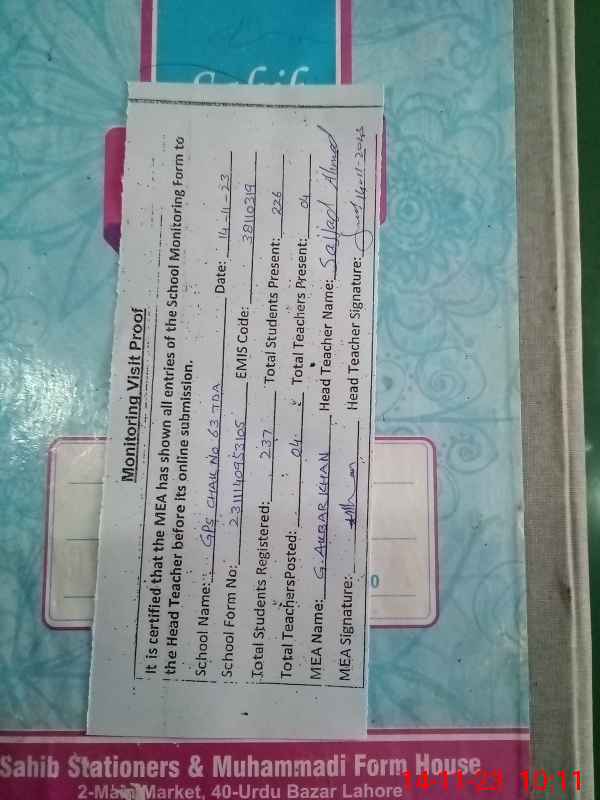 Sahib
Monitoring Visit Proof
It is certified that the MEA has shown all entries of the School Monitoring Form to
the Head Teacher before its online submission.
School Name: GPS CHAK No 63 TDA Date: 14-11-23
School Form No: 2311140953105 EMIS Code: 38110319
Total Students Registered: 237 Total Students Present: 226
Total TeachersPosted: 04 Total Teachers Present: 04
MEA Name: G. AKBAR KHAN Head Teacher Name: Sajjad Ahmad
MEA Signature: Head Teacher Signature: 14-11-2023
0
Sahib Stationers & Muhammadi Form House
2-Main Market, 40-Urdu Bazar Lahore
14-11-23 10:11